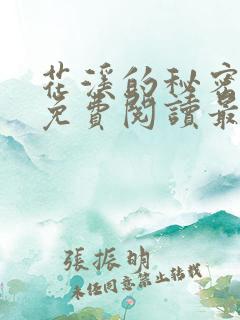 花溪的秘密
免費閱讀最
張振明
未經同意禁止轉載